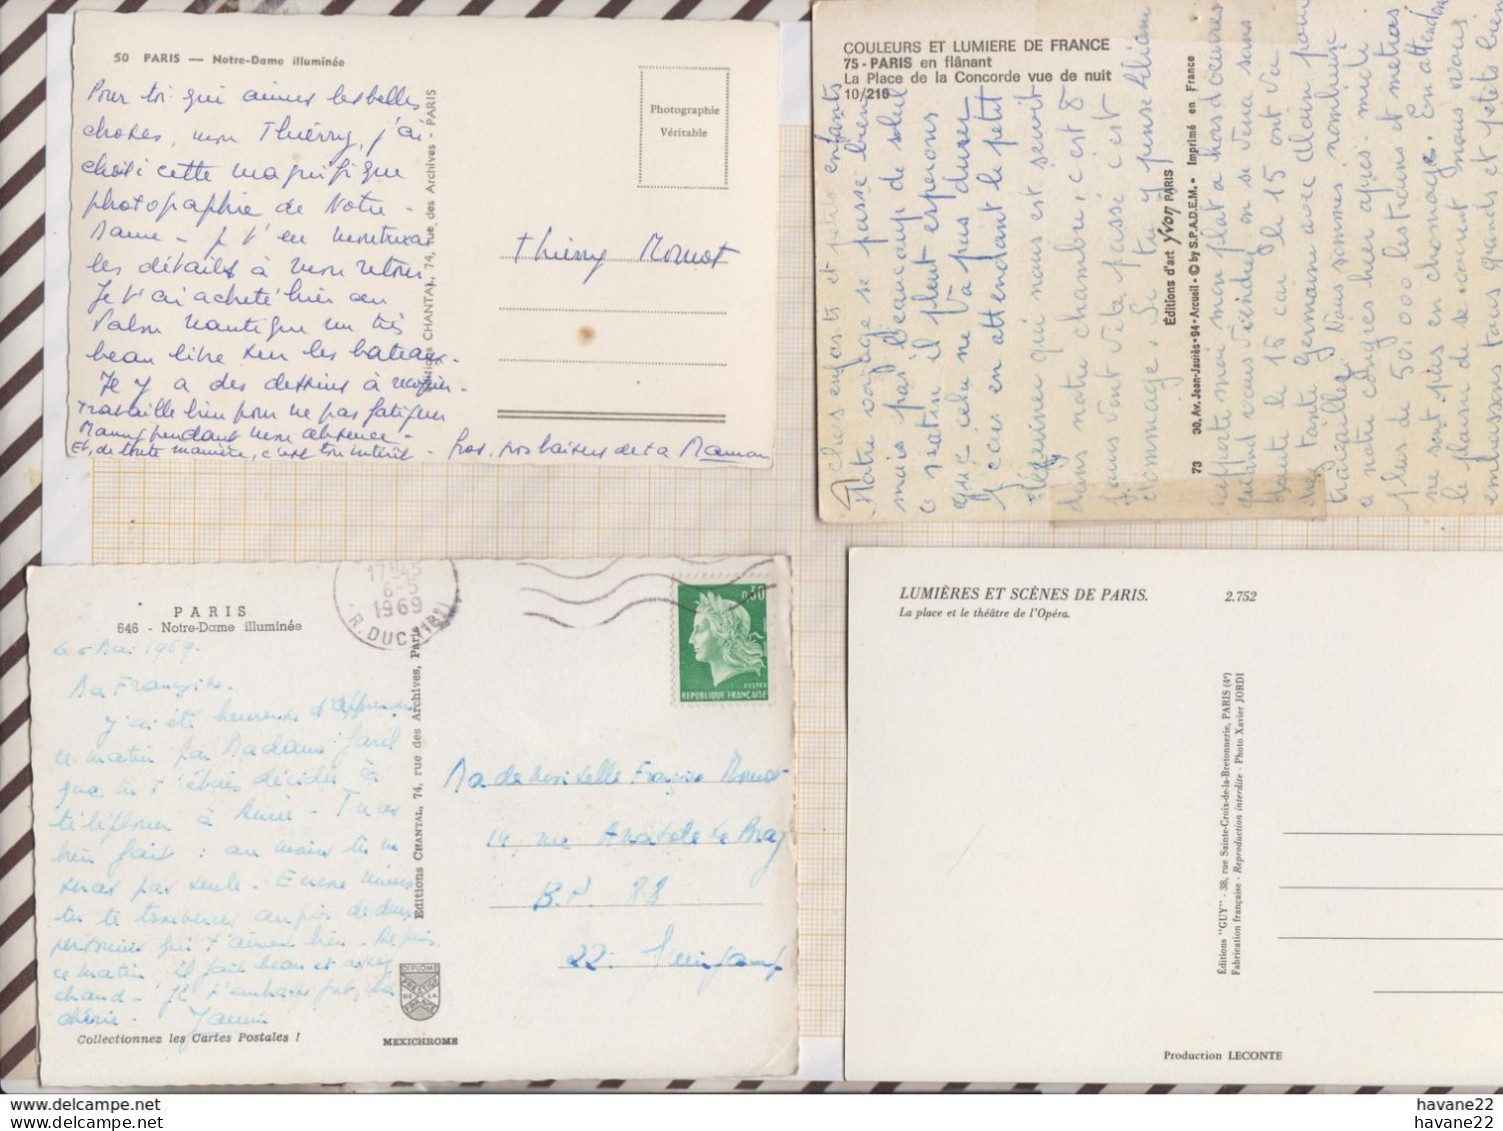 50 PARIS — Notre-Dame illuminée
Pour toi qui aimes les belles
choses, mon Thierry, j'ai
choisi cette magnifique
photographie de Notre-
Dame - je t'en montrerai
les détails à mon retour
Je t'ai acheté hier au
Salon Nautique un très
beau livre sur les bateaux.
Il y a des dessins à recopier.
Travaille bien pour ne pas fatiguer
Mamy pendant mon absence -
Et, de toute manière, c'est ton intérêt - Gros, gros baisers de ta Maman
Photographie
Véritable
Editions CHANTAL, 74, rue des Archives - PARIS
Thierry
COULEURS ET LUMIERE DE FRANCE
75 - PARIS en flânant
La Place de la Concorde vue de nuit
10/216
Chers enfants et petits enfants
Notre voyage se passe bien
mais pas beaucoup de soleil
ce matin il pleut espérons
que cela ne va pas durer
en attendant le petit
déjeuner qui nous est servit
dans notre chambre, c'est 8
jours vont vite passé c'est
dommage. Si tu y pense Eliane
Editions d'art Yvon PARIS
73 30, Av. Jean-Jaurès - 94 - Arcueil - © by S.P.A.D.E.M. - Imprimé en France
rapporte moi mon plat a hors d'œuvres
quand vous viendrez on se verra sans
doute le 15 ou
de tante Germaine avec Alain pour
travailler. Nous sommes nombreux
a notre congrès hier après midi
plus de 50.000 les trains et métros
ne sont pas en chomage. En attendant
le plaisir de se nous vous
embrassons tous grands et petits bien
PARIS
646 - Notre-Dame illuminée
17H45
6-5
1969
R. DUC (18E)
0,30
POSTES
REPUBLIQUE FRANÇAISE
Le 6 Mai 1969.
Ma Françoise.
J'ai été heureuse d'apprendre
ce matin par Madame
que tu t'étais décidée à
téléphoner à Renée - Tu as
bien fait : au moins tu ne
seras pas seule. Encore mieux
tu te trouveras auprès de deux
personnes qui t'aiment bien. Depuis
ce matin il fait beau et assez
chaud - Je t'embrasse
chérie.
Collectionnez les Cartes Postales !
Editions CHANTAL, 74, rue des Archives, Paris
Mademoiselle Françoise
14, rue Anatole Le Braz
B.P. 88
22. Guingamp
DIPLOME
PRESTIGE
DE LA
FRANCE
MEXICHROME
LUMIÈRES ET SCÈNES DE PARIS. 2.752
La place et le théâtre de l'Opéra.
Éditions "GUY" - 38, rue Sainte-Croix-de-la-Bretonnerie, PARIS (4e)
Fabrication française - Reproduction interdite - Photo Xavier JORDI
Production LECONTE
havane22
havane22
havane22
havane22